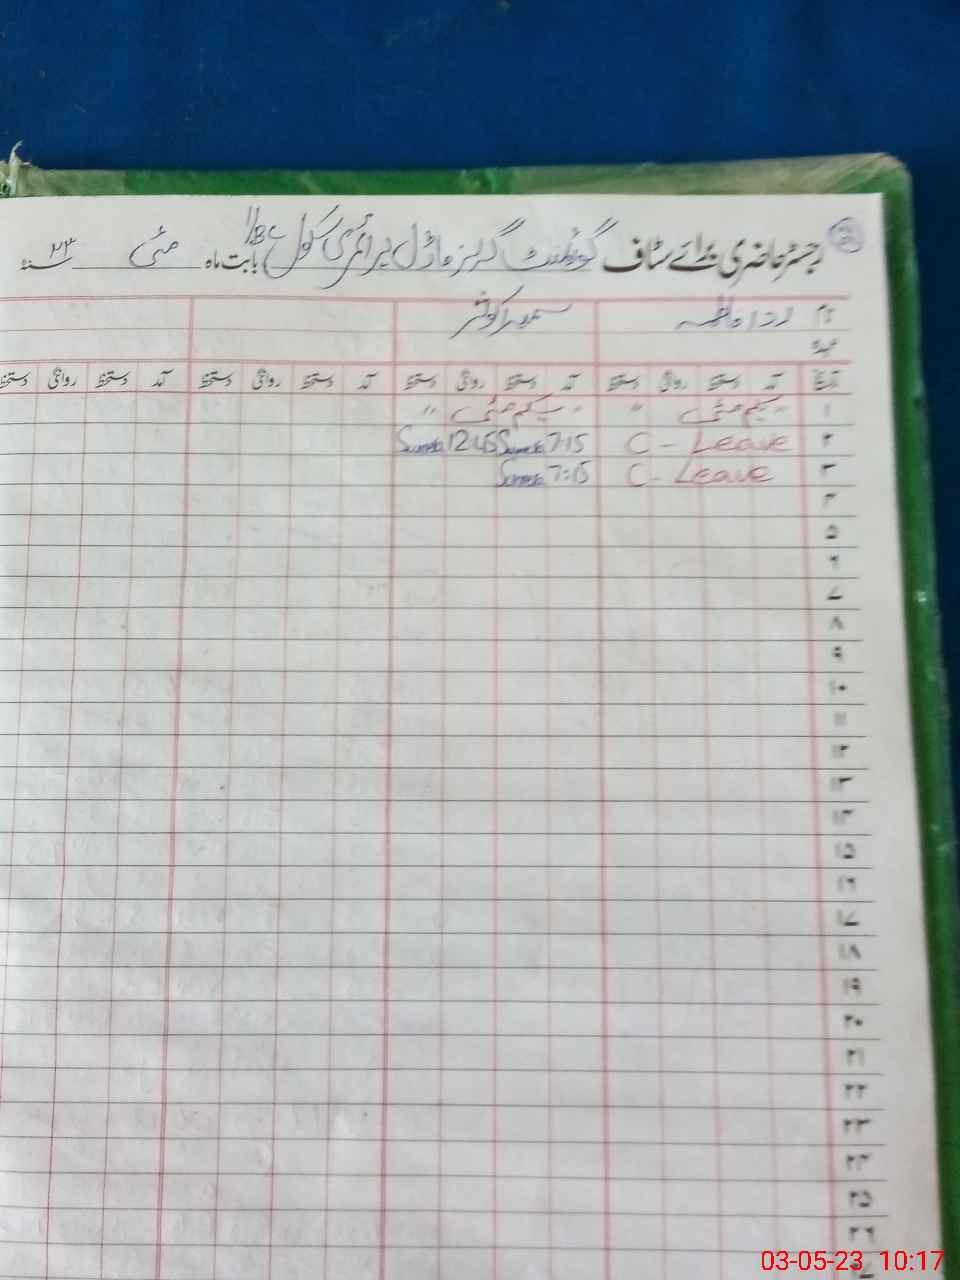 رجسٹر حاضری برائے سٹاف گورنمنٹ گرلز ماڈل پرائمری سکول بابت ماہ مئی سنہ ۲۳
نام سمیرا کوثر
عہدہ
تاریخ آمد دستخط روانگی دستخط آمد دستخط روانگی دستخط آمد دستخط روانگی دستخط آمد دستخط روانگی دستخط
۱ یکم مئی " یکم مئی "
۲ C - Leave 7:15 Sumera 12:45 Sumera
۳ C - Leave 7:15 Sumera
۴
۵
۶
۷
۸
۹
۱۰
۱۱
۱۲
۱۳
۱۴
۱۵
۱۶
۱۷
۱۸
۱۹
۲۰
۲۱
۲۲
۲۳
۲۴
۲۵
۲۶
03-05-23 10:17